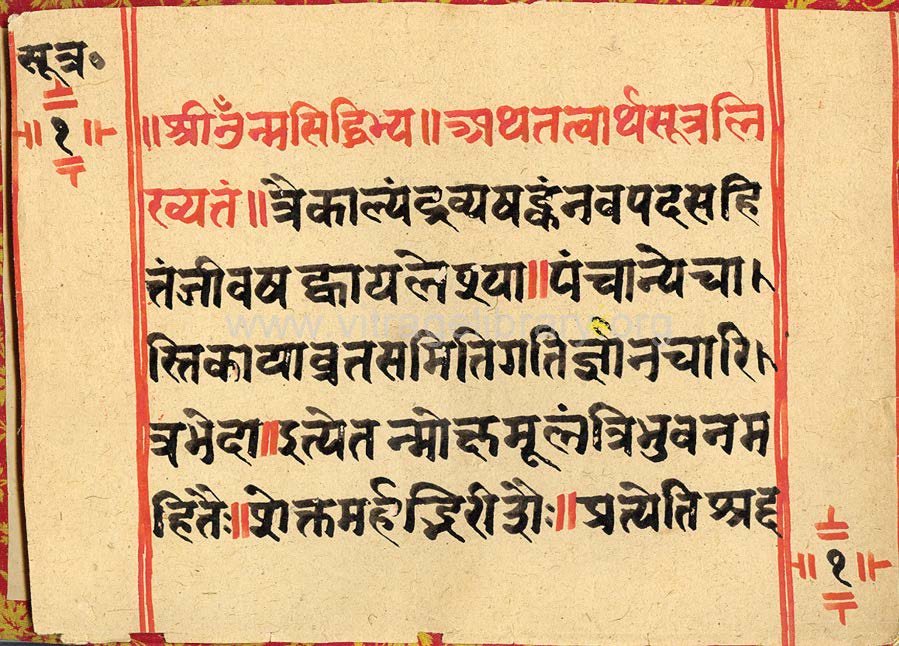 सूत्र॰
१
॥श्रीनँन्मसिद्धिभ्य॥अथतत्वार्थसूत्रलि
ख्यतं॥त्रैकाल्यंद्रव्यषट्कंनवपदसहि
तंजीवषट्कायलेश्या॥पंचान्येचा
स्तिकायाव्रतसमितिगतिर्ज्ञानचारि
त्रभेदा॥इत्येतन्मोक्षमूलंत्रिभुवनम
हितैः॥प्रोक्तमर्हद्भिरीशैः॥प्रत्येतिश्रद्द
१
www.vitragelibrary.org